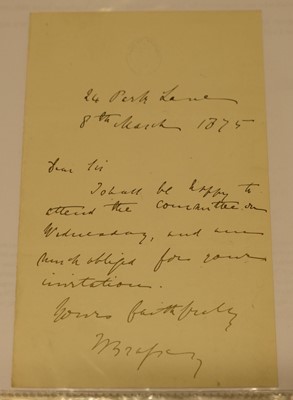 24 Park Lane
8th March 1875
Dear Sir
I shall be happy to
attend the committee on
Wednesday, and am
much obliged for your
invitation.
Yours faithfully
TBrassey